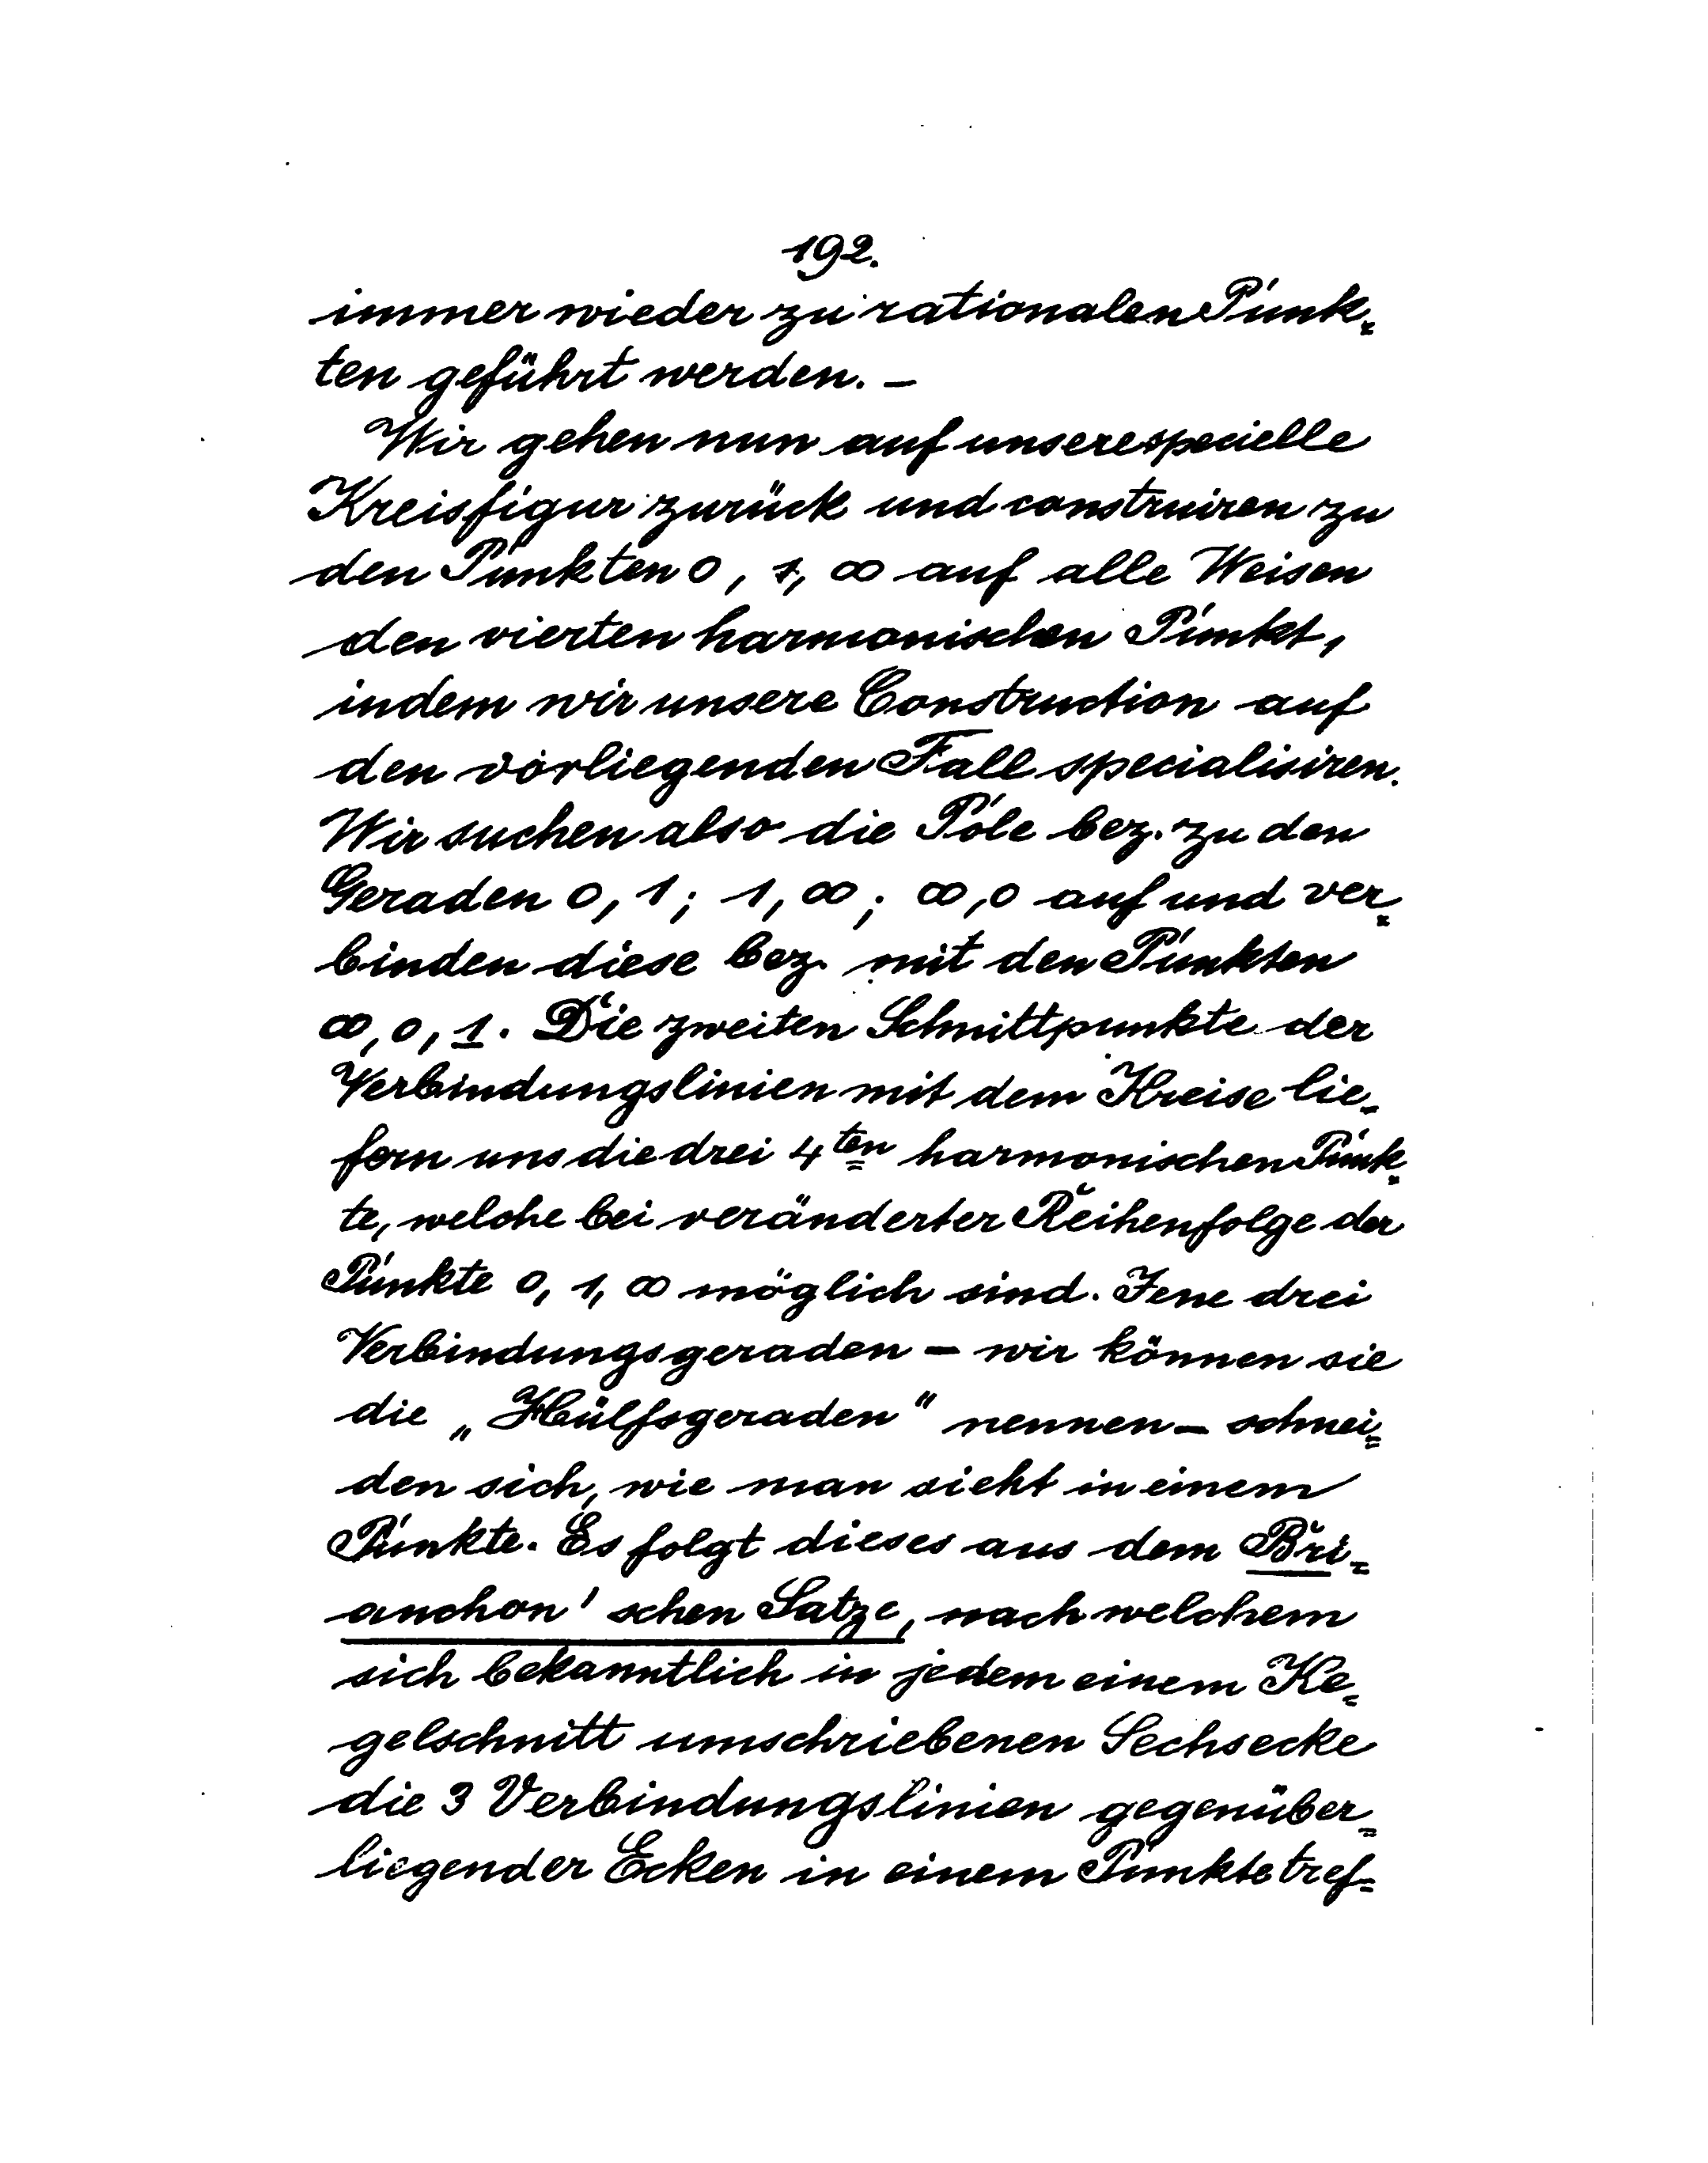 192.
immer wieder zu rationalen Punk-
ten geführt werden. –
Wir gehen nun auf unsere specielle
Kreisfigur zurück und construiren zu
den Punkten 0, 1, ∞ auf alle Weisen
den vierten harmonischen Punkt,
indem wir unsere Construction auf
den vorliegenden Fall specialisiren.
Wir suchen also die Pole bez. zu den
Geraden 0, 1; 1, ∞; ∞, 0 auf und ver-
binden diese bez. mit den Punkten
∞, 0, 1. Die zweiten Schnittpunkte der
Verbindungslinien mit dem Kreise lie-
fern uns die drei 4ten harmonischen Punk-
te, welche bei veränderter Reihenfolge der
Punkte 0, 1, ∞ möglich sind. Jene drei
Verbindungsgeraden – wir können sie
die „Hülfsgeraden“ nennen – schnei-
den sich, wie man sieht in einem
Punkte. Es folgt dieses aus dem Bri-
anchon'schen Satze, nach welchem
sich bekanntlich in jedem einem Ke-
gelschnitt umschriebenen Sechsecke
die 3 Verbindungslinien gegenüber-
liegender Ecken in einem Punkte tref-